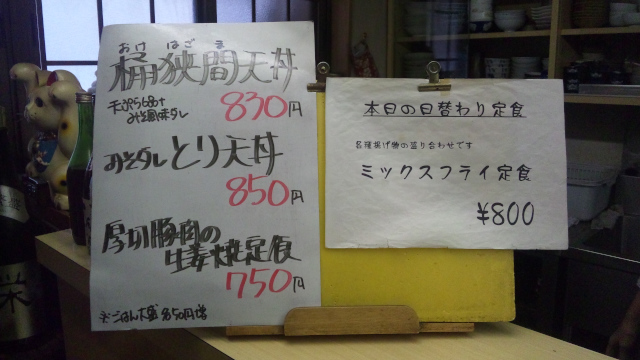 おけ はざま
桶狭間天丼
天ぷら6ヶ+
みそ風味タレ
830円
みそダレとり天丼
850円
厚切豚肉の
生姜焼定食
750円
※ごはん大盛各50円増
本日の日替わり定食
各種揚げ物の盛り合わせです
ミックスフライ定食
¥800
栄